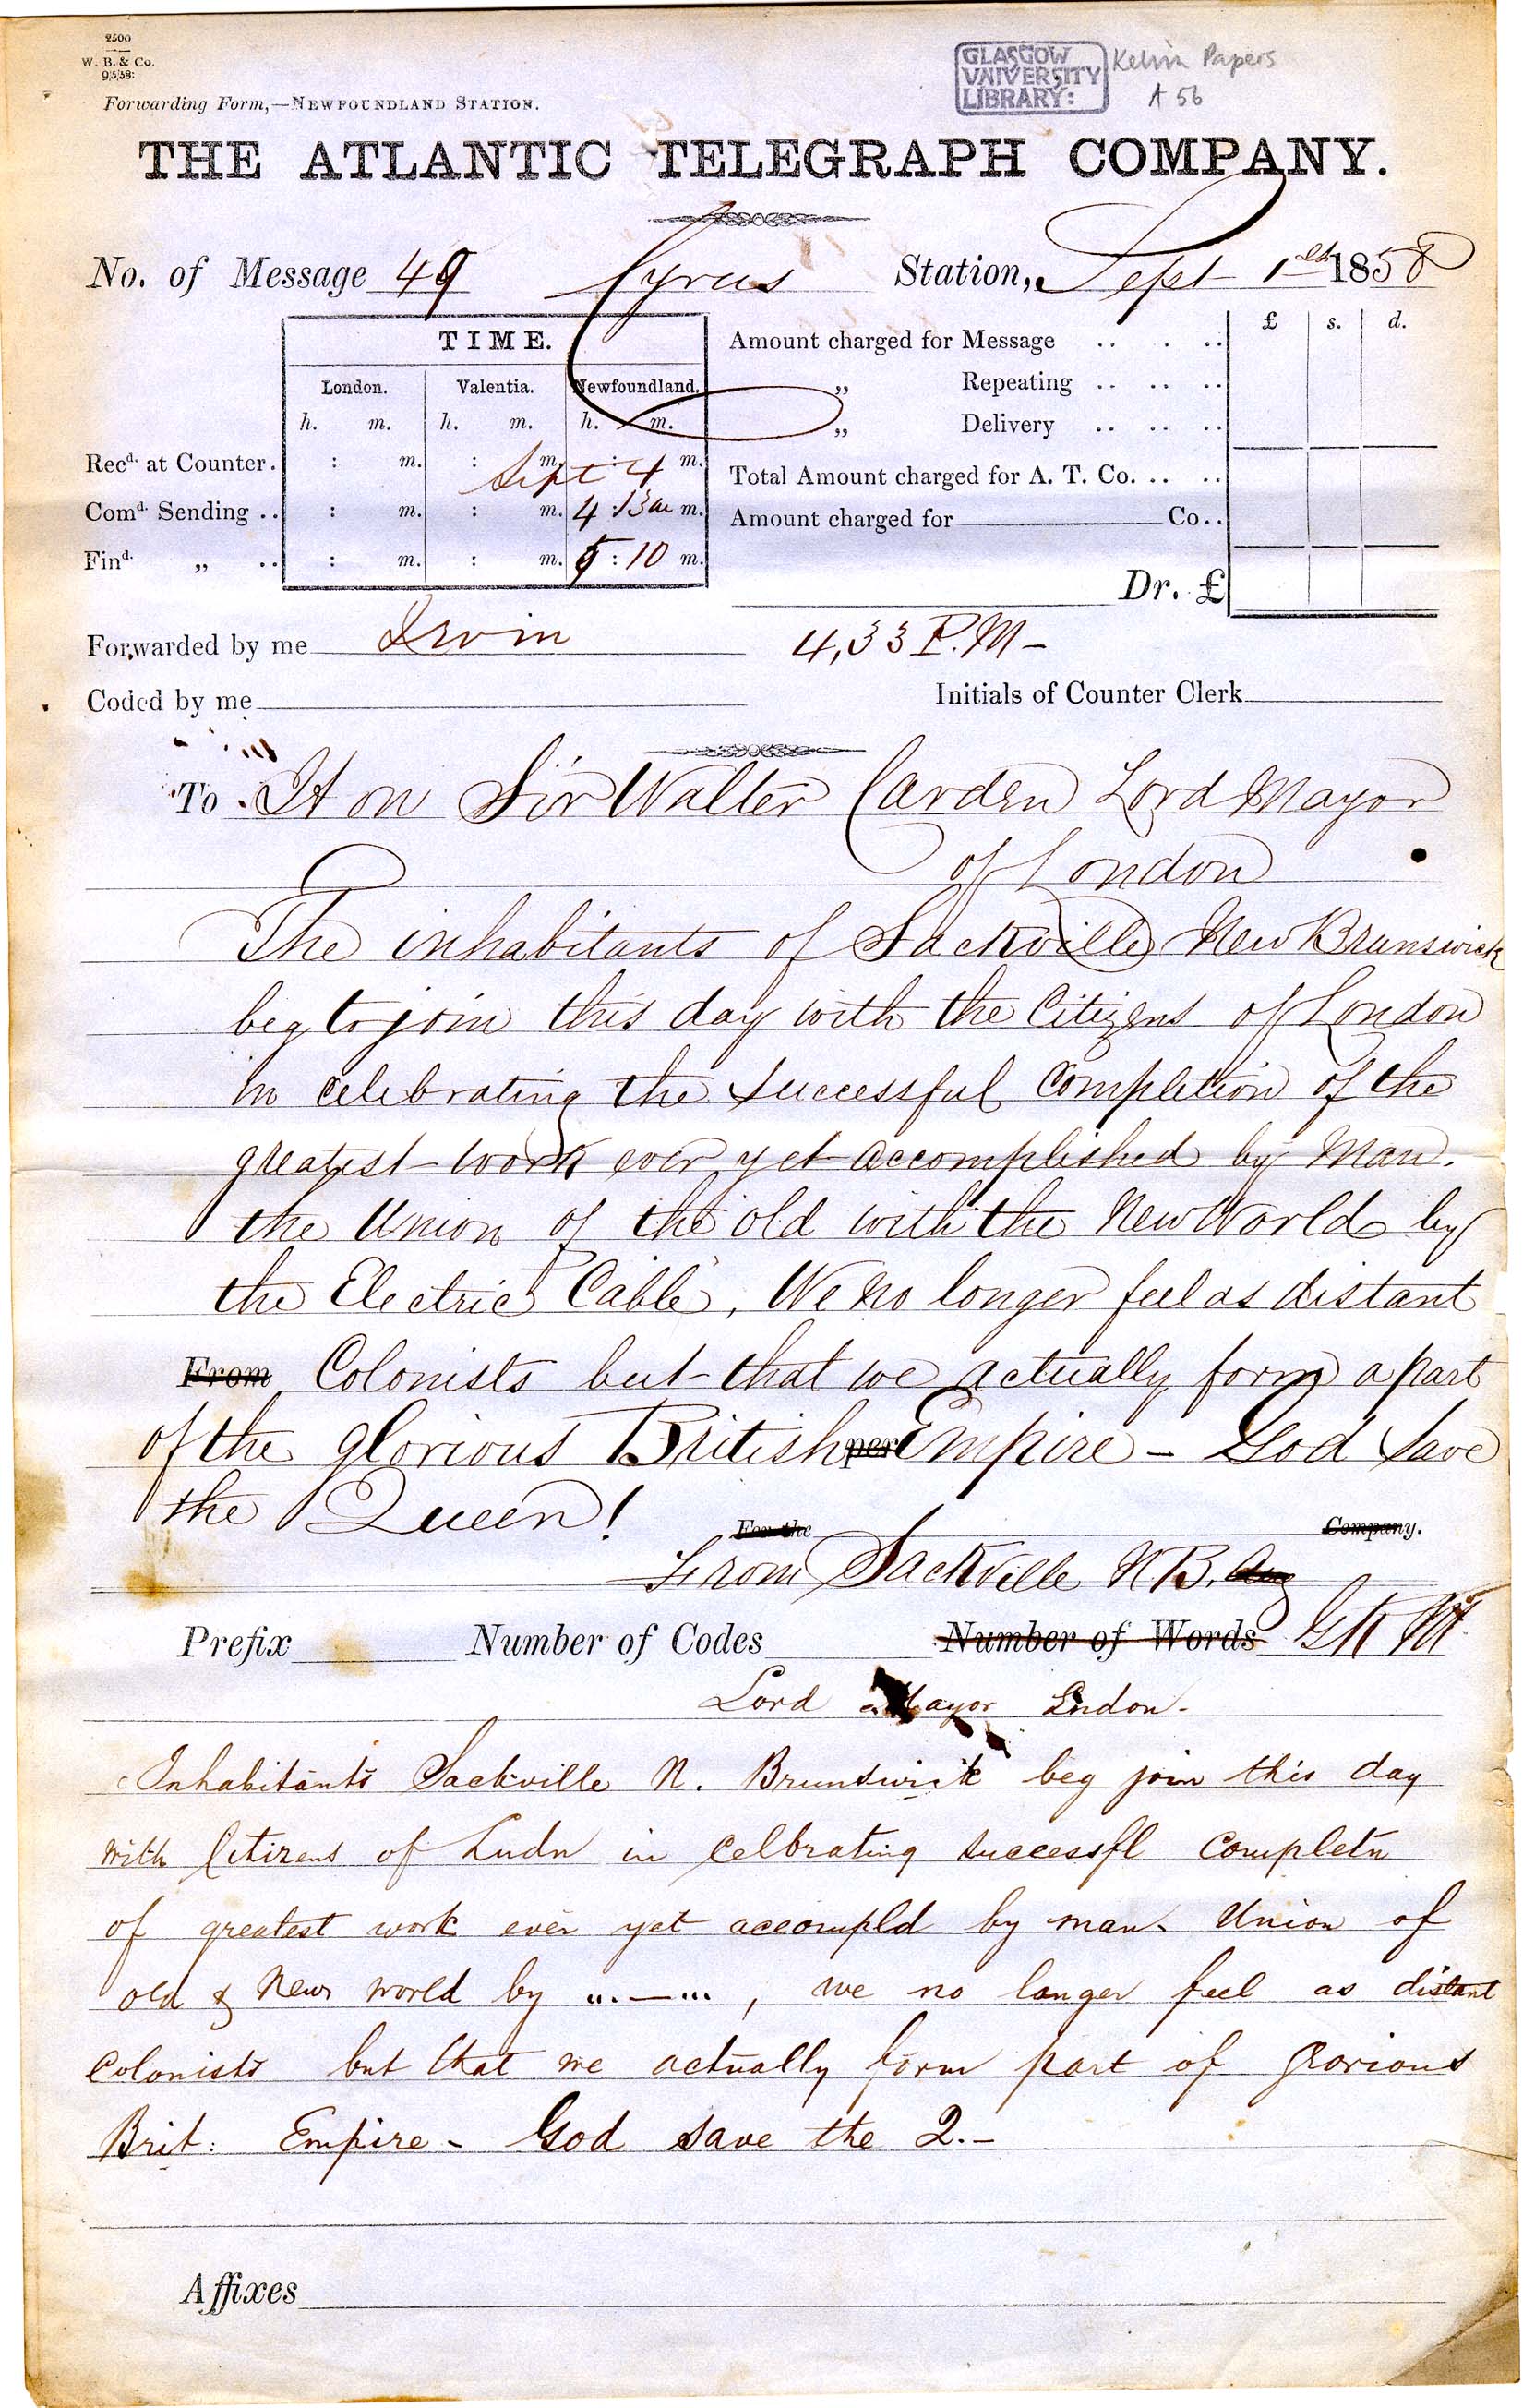 2500
W. B. & Co.
9/5/58:
Forwarding Form,—NEWFOUNDLAND STATION.
GLASGOW
UNIVERSITY
LIBRARY:
Kelvin Papers
A 56
THE ATLANTIC TELEGRAPH COMPANY.
No. of Message 49 Cyrus Station, Sept 1st 1858
TIME.
London. Valentia. Newfoundland.
h. m. h. m. h. m.
Recd. at Counter. : m. : m. : m.
Sept 4
Comd. Sending .. : m. : m. 4 : 13 am m.
Find. „ .. : m. : m. 5 : 10 m.
£ s. d.
Amount charged for Message .. . ..
„ Repeating .. .. ..
„ Delivery .. .. ..
Total Amount charged for A. T. Co. .. ..
Amount charged for Co..
Dr. £
Forwarded by me Irvin 4,33 P.M-
Coded by me Initials of Counter Clerk
To Hon Sir Walter Carden Lord Mayor
of London
The inhabitants of Sackville New Brunswick
beg to join this day with the Citizens of London
in celebrating the successful Completion of the
greatest work ever yet accomplished by Man.
the Union of the old with the New World by
the Electric Cable, We no longer feel as distant
From Colonists but that we actually form a part
of the glorious British per Empire - God Save
the Queen!
For the Company.
From Sackville N B. Aug
Prefix Number of Codes Number of Words
Lord Mayor Lndon-
Inhabitants Sackville N. Brunswick beg join this day
with Citizens of Lndn in celbrating successfl completn
of greatest work ever yet accompld by man- Union of
old & New world by , we no longer feel as distant
colonists but that we actually form part of glorious
Brit: Empire - God save the Q.-
Affixes